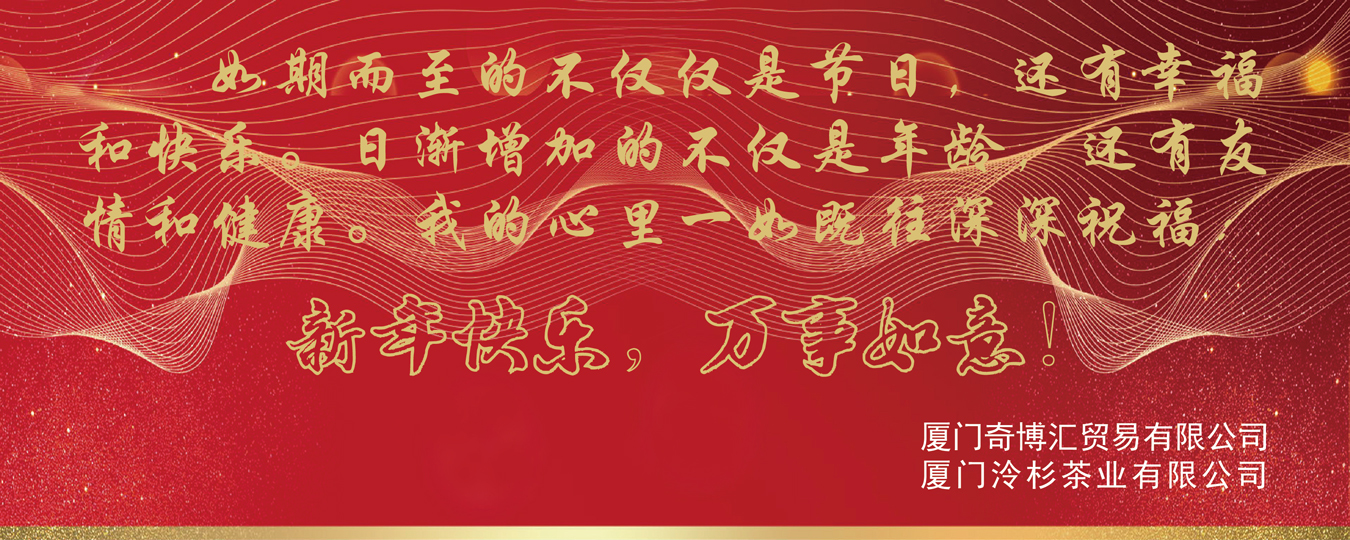 如期而至的不仅仅是节日，还有幸福
和快乐。日渐增加的不仅是年龄，还有友
情和健康。我的心里一如既往深深祝福：
新年快乐，万事如意！
厦门奇博汇贸易有限公司
厦门泠杉茶业有限公司